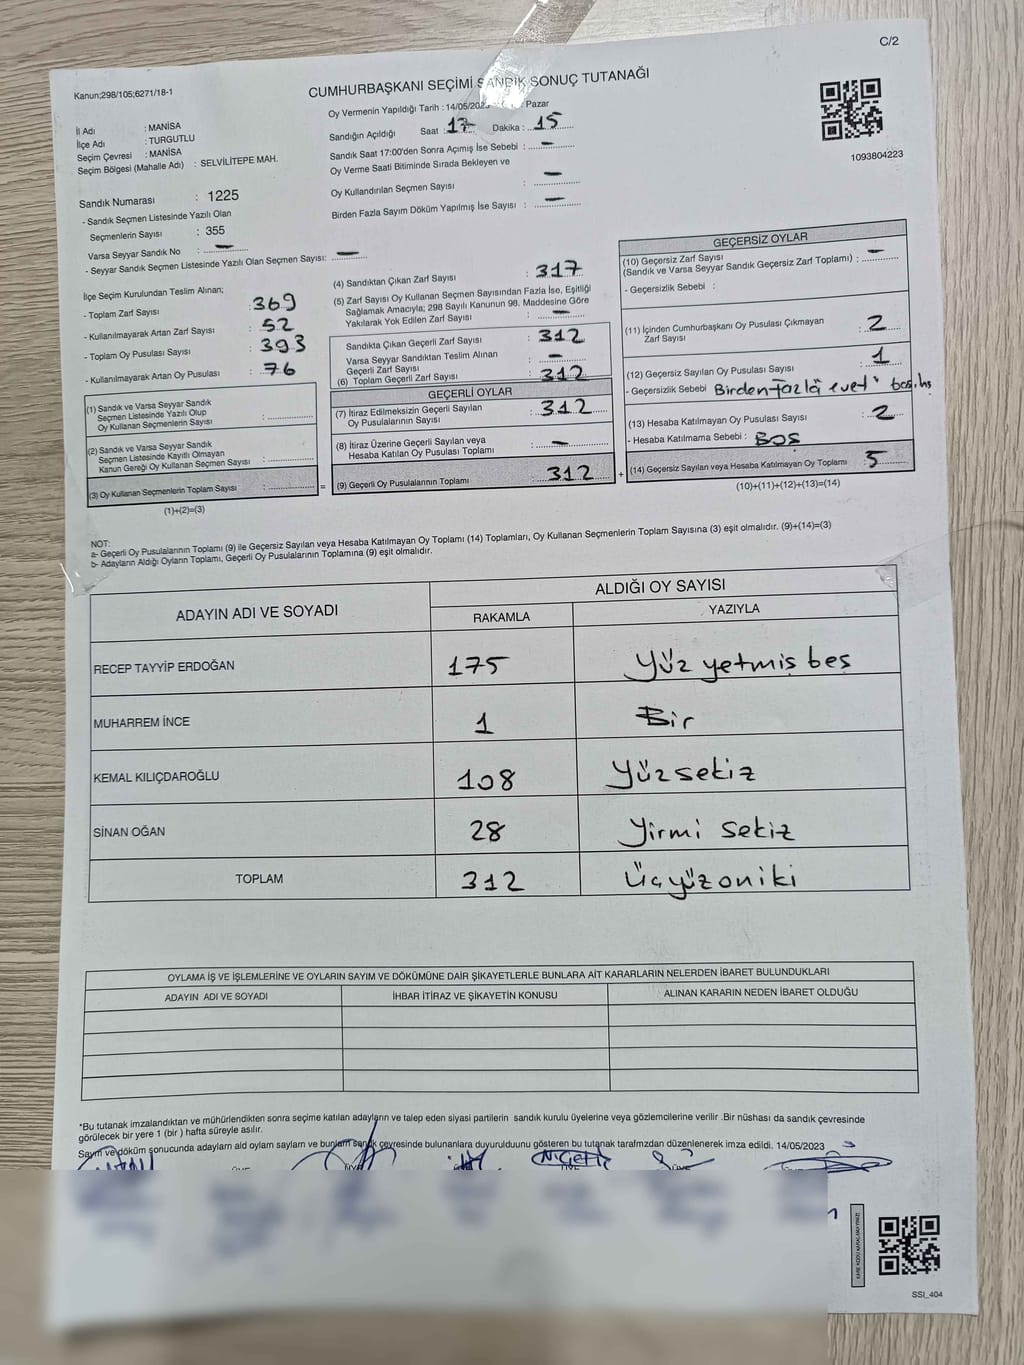 C/2
Kanun;298/105;6271/18-1
CUMHURBAŞKANI SEÇİMİ SANDIK SONUÇ TUTANAĞI
Oy Vermenin Yapıldığı Tarih : 14/05/2023 Pazar
İl Adı : MANİSA
İlçe Adı : TURGUTLU
Seçim Çevresi : MANİSA
Seçim Bölgesi (Mahalle Adı) : SELVİLİTEPE MAH.
Sandık Numarası : 1225
- Sandık Seçmen Listesinde Yazılı Olan
Seçmenlerin Sayısı : 355
Varsa Seyyar Sandık No : —
- Seyyar Sandık Seçmen Listesinde Yazılı Olan Seçmen Sayısı: —
Sandığın Açıldığı Saat : 17 Dakika : 15
Sandık Saat 17:00'den Sonra Açımış İse Sebebi : —
Oy Verme Saati Bitiminde Sırada Bekleyen ve
Oy Kullandırılan Seçmen Sayısı : —
Birden Fazla Sayım Döküm Yapılmış İse Sayısı : —
1093804223
İlçe Seçim Kurulundan Teslim Alınan;
- Toplam Zarf Sayısı : 369
- Kullanılmayarak Artan Zarf Sayısı : 52
- Toplam Oy Pusulası Sayısı : 393
- Kullanılmayarak Artan Oy Pusulası : 76
(1) Sandık ve Varsa Seyyar Sandık
Seçmen Listesinde Yazılı Olup
Oy Kullanan Seçmenlerin Sayısı :
(2) Sandık ve Varsa Seyyar Sandık
Seçmen Listesinde Kayıtlı Olmayan
Kanun Gereği Oy Kullanan Seçmen Sayısı :
(3) Oy Kullanan Seçmenlerin Toplam Sayısı :
(1)+(2)=(3)
=
(4) Sandıktan Çıkan Zarf Sayısı : 317
(5) Zarf Sayısı Oy Kullanan Seçmen Sayısından Fazla İse, Eşitliği
Sağlamak Amacıyla; 298 Sayılı Kanunun 98. Maddesine Göre
Yakılarak Yok Edilen Zarf Sayısı : —
Sandıkta Çıkan Geçerli Zarf Sayısı : 312
Varsa Seyyar Sandıktan Teslim Alınan
Geçerli Zarf Sayısı : —
(6) Toplam Geçerli Zarf Sayısı : 312
GEÇERLİ OYLAR
(7) İtiraz Edilmeksizin Geçerli Sayılan
Oy Pusulasının Sayısı : 312
(8) İtiraz Üzerine Geçerli Sayılan veya
Hesaba Katılan Oy Pusulası Toplamı : —
(9) Geçerli Oy Pusulalarının Toplamı : 312
+
GEÇERSİZ OYLAR
(10) Geçersiz Zarf Sayısı
(Sandık ve Varsa Seyyar Sandık Geçersiz Zarf Toplamı) : —
- Geçersizlik Sebebi :
(11) İçinden Cumhurbaşkanı Oy Pusulası Çıkmayan
Zarf Sayısı : 2
(12) Geçersiz Sayılan Oy Pusulası Sayısı : 1
- Geçersizlik Sebebi Birden Fazla evet
(13) Hesaba Katılmayan Oy Pusulası Sayısı : 2
- Hesaba Katılmama Sebebi : BOŞ
(14) Geçersiz Sayılan veya Hesaba Katılmayan Oy Toplamı : 5
(10)+(11)+(12)+(13)=(14)
NOT:
a- Geçerli Oy Pusulalarının Toplamı (9) ile Geçersiz Sayılan veya Hesaba Katılmayan Oy Toplamı (14) Toplamları, Oy Kullanan Seçmenlerin Toplam Sayısına (3) eşit olmalıdır. (9)+(14)=(3)
b- Adayların Aldığı Oyların Toplamı, Geçerli Oy Pusulalarının Toplamına (9) eşit olmalıdır.
ADAYIN ADI VE SOYADI
ALDIĞI OY SAYISI
RAKAMLA YAZIYLA
RECEP TAYYİP ERDOĞAN 175 Yüz yetmiş beş
MUHARREM İNCE 1 Bir
KEMAL KILIÇDAROĞLU 108 Yüzsekiz
SİNAN OĞAN 28 Yirmi sekiz
TOPLAM 312 Üçyüzoniki
OYLAMA İŞ VE İŞLEMLERİNE VE OYLARIN SAYIM VE DÖKÜMÜNE DAİR ŞİKAYETLERLE BUNLARA AİT KARARLARIN NELERDEN İBARET BULUNDUKLARI
ADAYIN ADI VE SOYADI İHBAR İTİRAZ VE ŞİKAYETİN KONUSU ALINAN KARARIN NEDEN İBARET OLDUĞU
*Bu tutanak imzalandıktan ve mühürlendikten sonra seçime katılan adayların ve talep eden siyasi partilerin sandık kurulu üyelerine veya gözlemcilerine verilir .Bir nüshası da sandık çevresinde
görülecek bir yere 1 (bir ) hafta süreyle asılır.
Sayım ve döküm sonucunda adayların ald oyların sayıları ve bunların sandık çevresinde bulunanlara duyurulduunu gösteren bu tutanak tarafımzdan düzenlenerek imza edildi. 14/05/2023
SSI_404